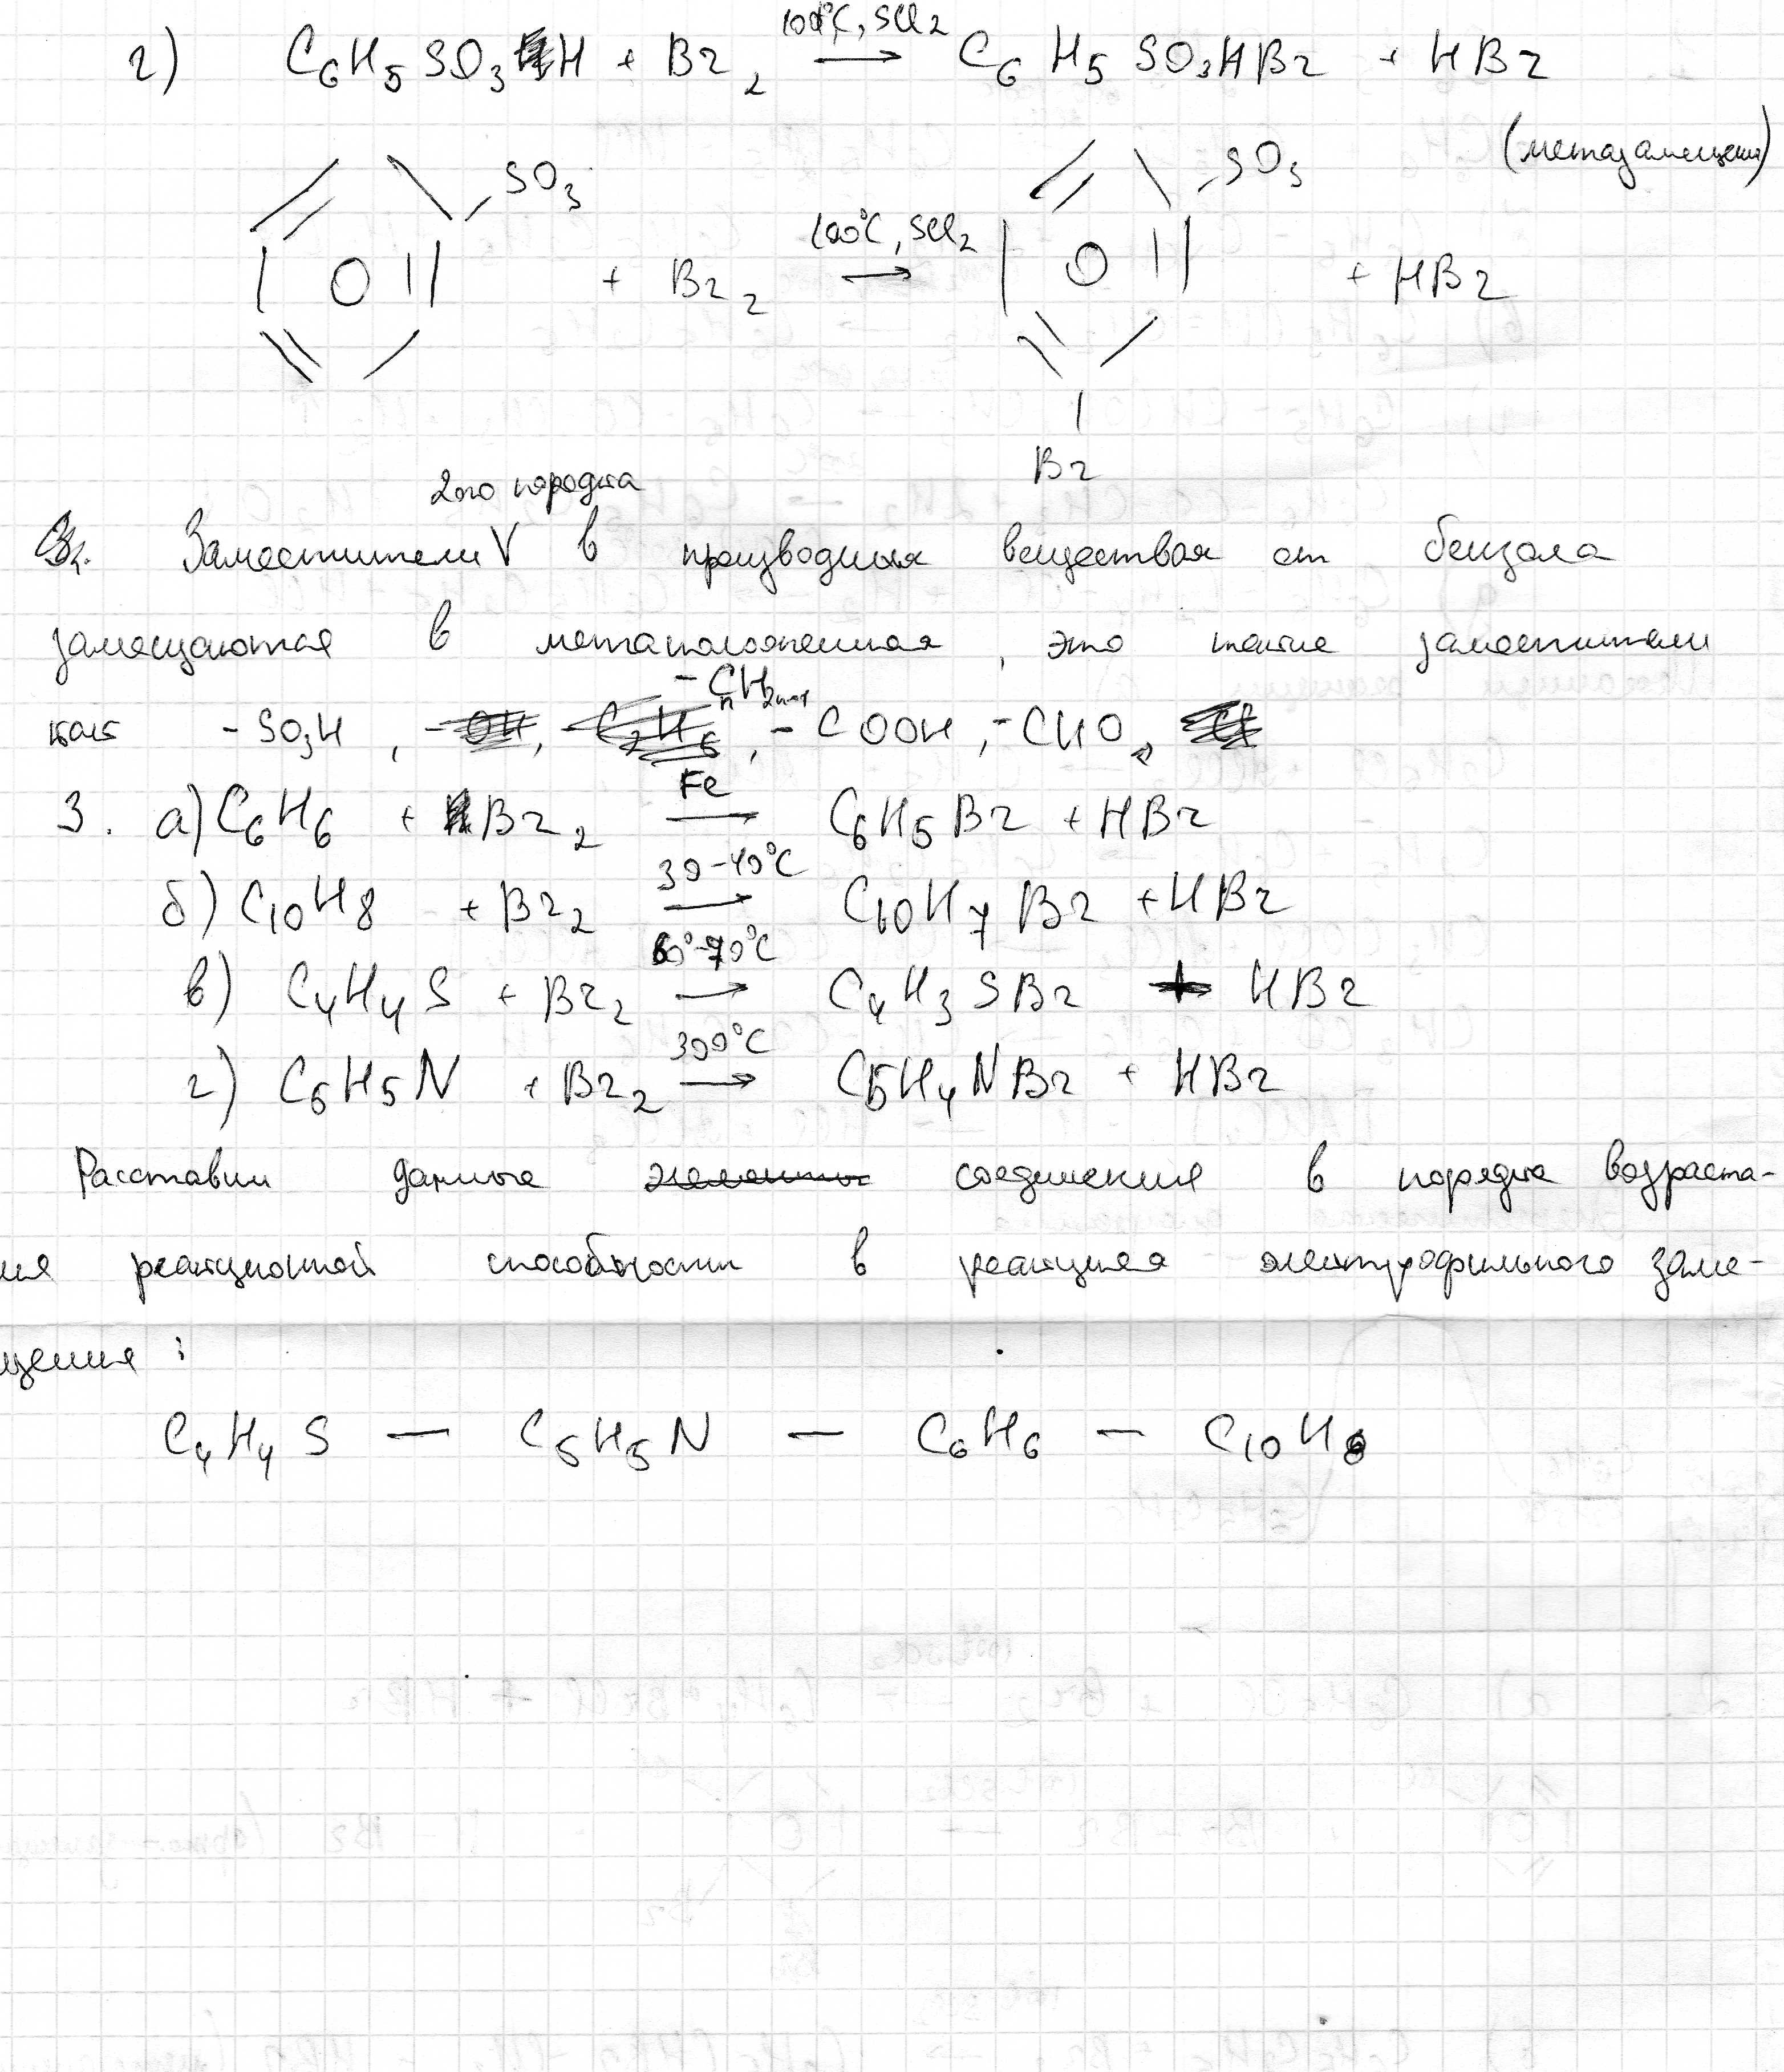 г) C₆H₅SO₃H + Br₂ 100°C, SCl₂ → C₆H₅SO₃HBr + HBr
(метазамещение)
SO₃ + Br₂ 100°C, SCl₂ → SO₃ Br + HBr
2ого порядка
Заместители V в производных веществах от бензола
замещаются в метаположениях, это такие заместители
-CₙH₂ₙ₊₁
как -SO₃H, -OH, -C₂H₅, -COOH, -CHO,
3. а) C₆H₆ + Br₂ Fe → C₆H₅Br + HBr
б) C₁₀H₈ + Br₂ 30-40°C → C₁₀H₇Br + HBr
в) C₄H₄S + Br₂ → C₄H₃SBr + HBr
г) C₅H₅N + Br₂ 300°C → C₅H₄NBr + HBr
Расставим данные элементы соединения в порядке возраста-
ния реакционной способности в реакциях электрофильного заме-
щения:
C₄H₄S — C₅H₅N — C₆H₆ — C₁₀H₈